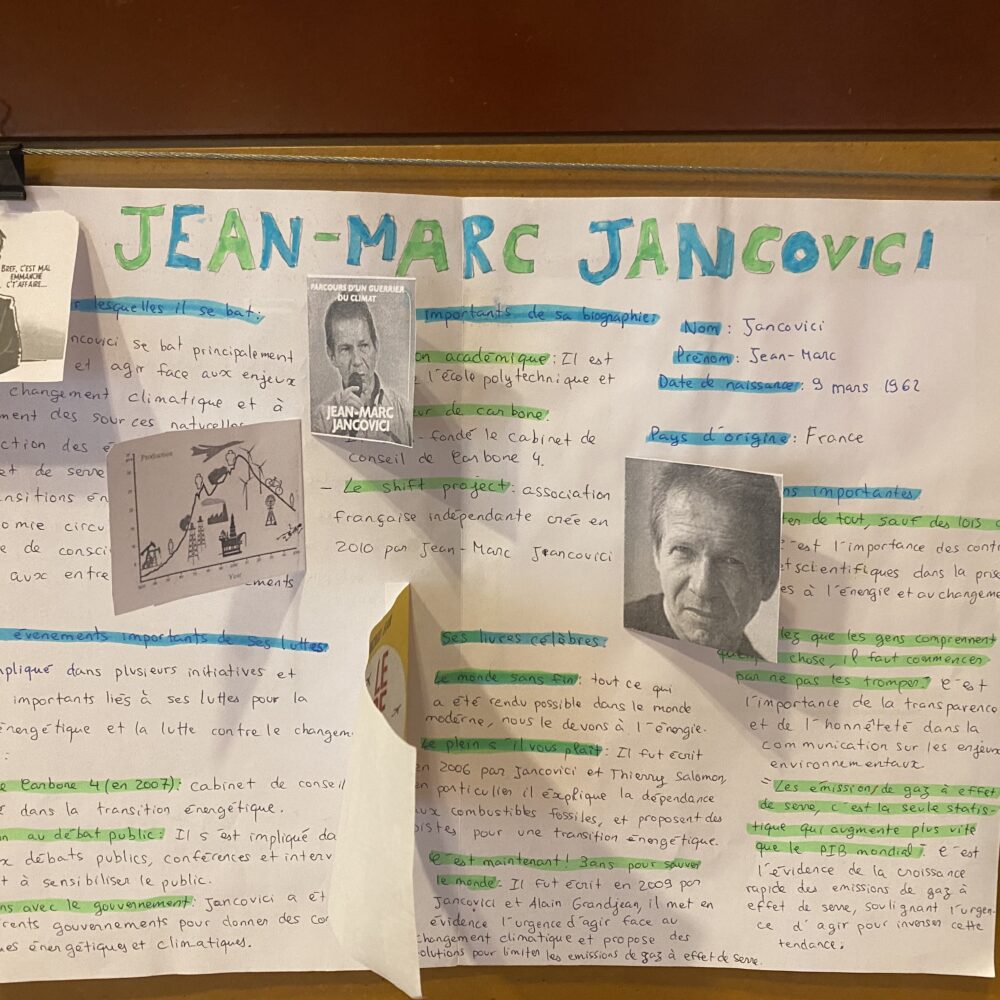 JEAN-MARC JANCOVICI
BREF, C'EST MAL
EMMANCHÉ
C'T'AFFAIRE...
lesquelles il se bat:
se bat principalement
et agir face aux enjeux
changement climatique et à
des sources naturelles
des
de serre
économie
de
aux
Production
évènements importants de ses luttes
dans plusieurs initiatives et
importants liés à ses luttes pour la
énergétique et la lutte contre le
:
Carbone 4 (en 2007): Cabinet de conseil
dans la transition énergétique.
au débat public: Il s'est impliqué
débats publics, conférences et
à sensibiliser le public.
avec le gouvernement: Jancovici a
gouvernements pour donner des
énergétiques et climatiques.
PARCOURS D'UN GUERRIER
DU CLIMAT
JEAN-MARC
JANCOVICI
importants de sa biographie:
académique: Il est
l'école polytechnique et
de carbone:
- fondé le cabinet de
conseil de Carbone 4.
- Le shift project: association
française indépendante crée en
2010 par Jean-Marc Jancovici
LE
Ses livres célèbres
Le monde sans fin: tout ce qui
a été rendu possible dans le monde
moderne, nous le devons à l'énergie.
Le plein s'il vous plait: Il fut écrit
en 2006 par Jancovici et Thierry Salomon,
en particulier il éxplique la dépendance
aux combustibles fossiles, et proposent des
pistes pour une transition énergétique.
C'est maintenant! 3ans pour sauver
le monde: Il fut écrit en 2009 par
Jancovici et Alain Grandjean, il met en
évidence l'urgence d'agir face au
changement climatique et propose des
solutions pour limiter les emissions de gaz à effet de serre.
Nom: Jancovici
Prénom: Jean-Marc
Date de naissance: 9 mars 1962
Pays d'origine: France
importantes
de tout, sauf des lois
c'est l'importance des
scientifiques dans la
à l'énergie et au
que les gens comprennent
chose, il faut commencer
par ne pas les tromper." C'est
l'importance de la transparence
et de l'honnêteté dans la
communication sur les enjeux
environnementaux.
"Les émissions de gaz à effet
de serre, c'est la seule statis-
tique qui augmente plus vite
que le PIB mondial". C'est
l'évidence de la croissance
rapide des emissions de gaz à
effet de serre, soulignant l'urgen-
ce d'agir pour inverser cette
tendance.